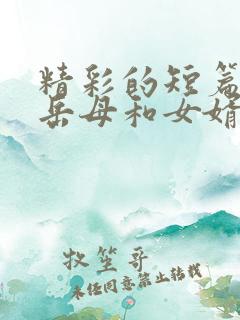 精彩的短篇
岳母和女婿
牧笙哥
未经同意禁止转载